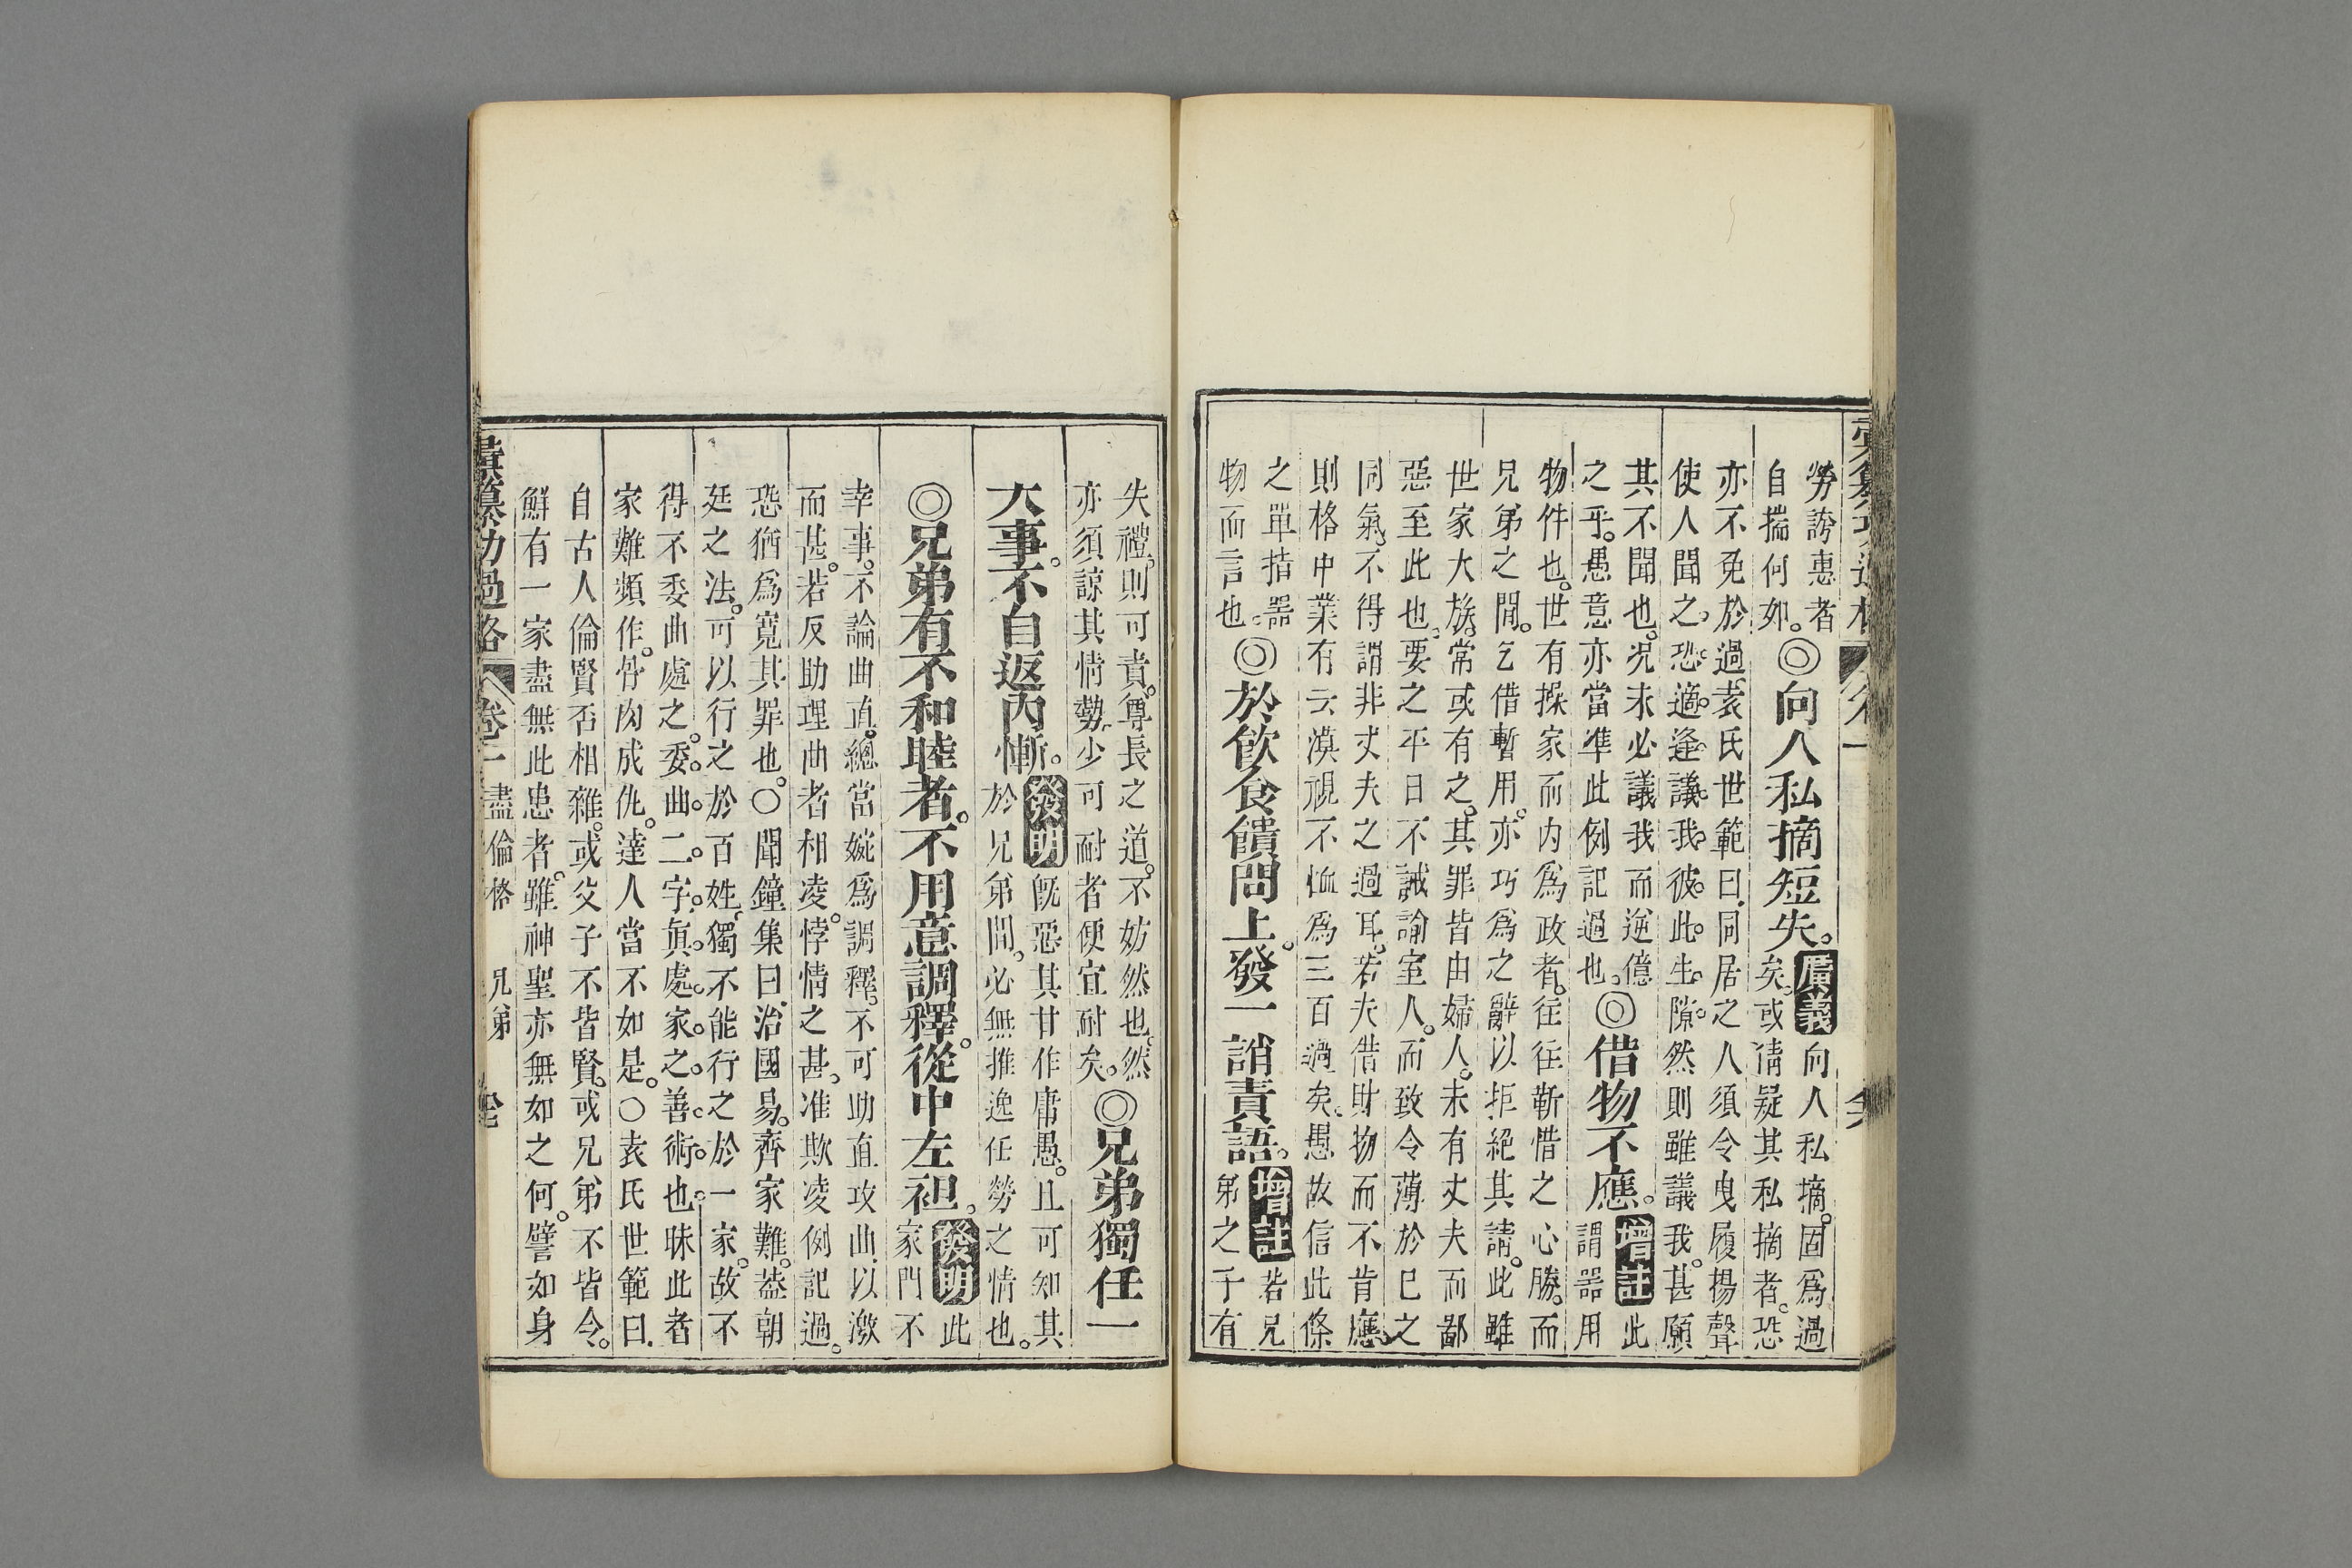 勞誇惠者
自揣何如。
◎向人私摘短失。
廣義
向人私摘。固爲過
矣。或猜疑其私摘者。恐
亦不免於過。袁氏世範曰。同居之人須令曳履揚聲
使人聞之。恐適逢議我。彼此生隙。然則雖議我。甚願
其不聞也。况未必議我而逆億
之乎。愚意亦當準此例記過也。
◎借物不應。
增註
此
謂器用
物件也。世有操家而内爲政者。往往靳惜之心勝。而
兄弟之間。乞借暫用。亦巧爲之辭以拒絕其請。此雖
世家大族。常或有之。其罪皆由婦人。未有丈夫而鄙
惡至此也。要之平日不誡諭室人。而致令薄於已之
同氣。不得謂非丈夫之過耳。若夫借財物而不肯應。
則格中業有云漠視不恤爲三百過矣。愚故信此條
之單指器
物而言也。
◎於飲食饋問上。發一誚責語。
增註
若兄
弟之于有
失禮。則可責。尊長之道。不妨然也。然
亦須諒其情勢。少可耐者。便宜耐矣。
◎兄弟獨任一
大事。不自返内慚。
發明
旣惡其甘作庸愚。且可知其
於兄弟間。必無推逸任勞之情也。
◎兄弟有不和睦者。不用意調釋。從中左袒。
發明
此
家門不
幸事。不論曲直。總當婉爲調釋。不可助直攻曲。以激
而甚。若反助理曲者相凌。悖情之甚。准欺凌例記過。
恐猶爲寬其罪也。○聞鐘集曰。治國易。齊家難。葢朝
廷之法。可以行之於百姓。獨不能行之於一家。故不
得不委曲處之。委曲二字。眞處家之善術也。昧此者
家難頻作。骨肉成仇。達人當不如是。○袁氏世範曰。
自古人倫。賢否相雜。或父子不皆賢。或兄弟不皆令。
鮮有一家盡無此患者。雖神聖亦無如之何。譬如身
彙纂功過格
卷二
盡倫格
兄弟